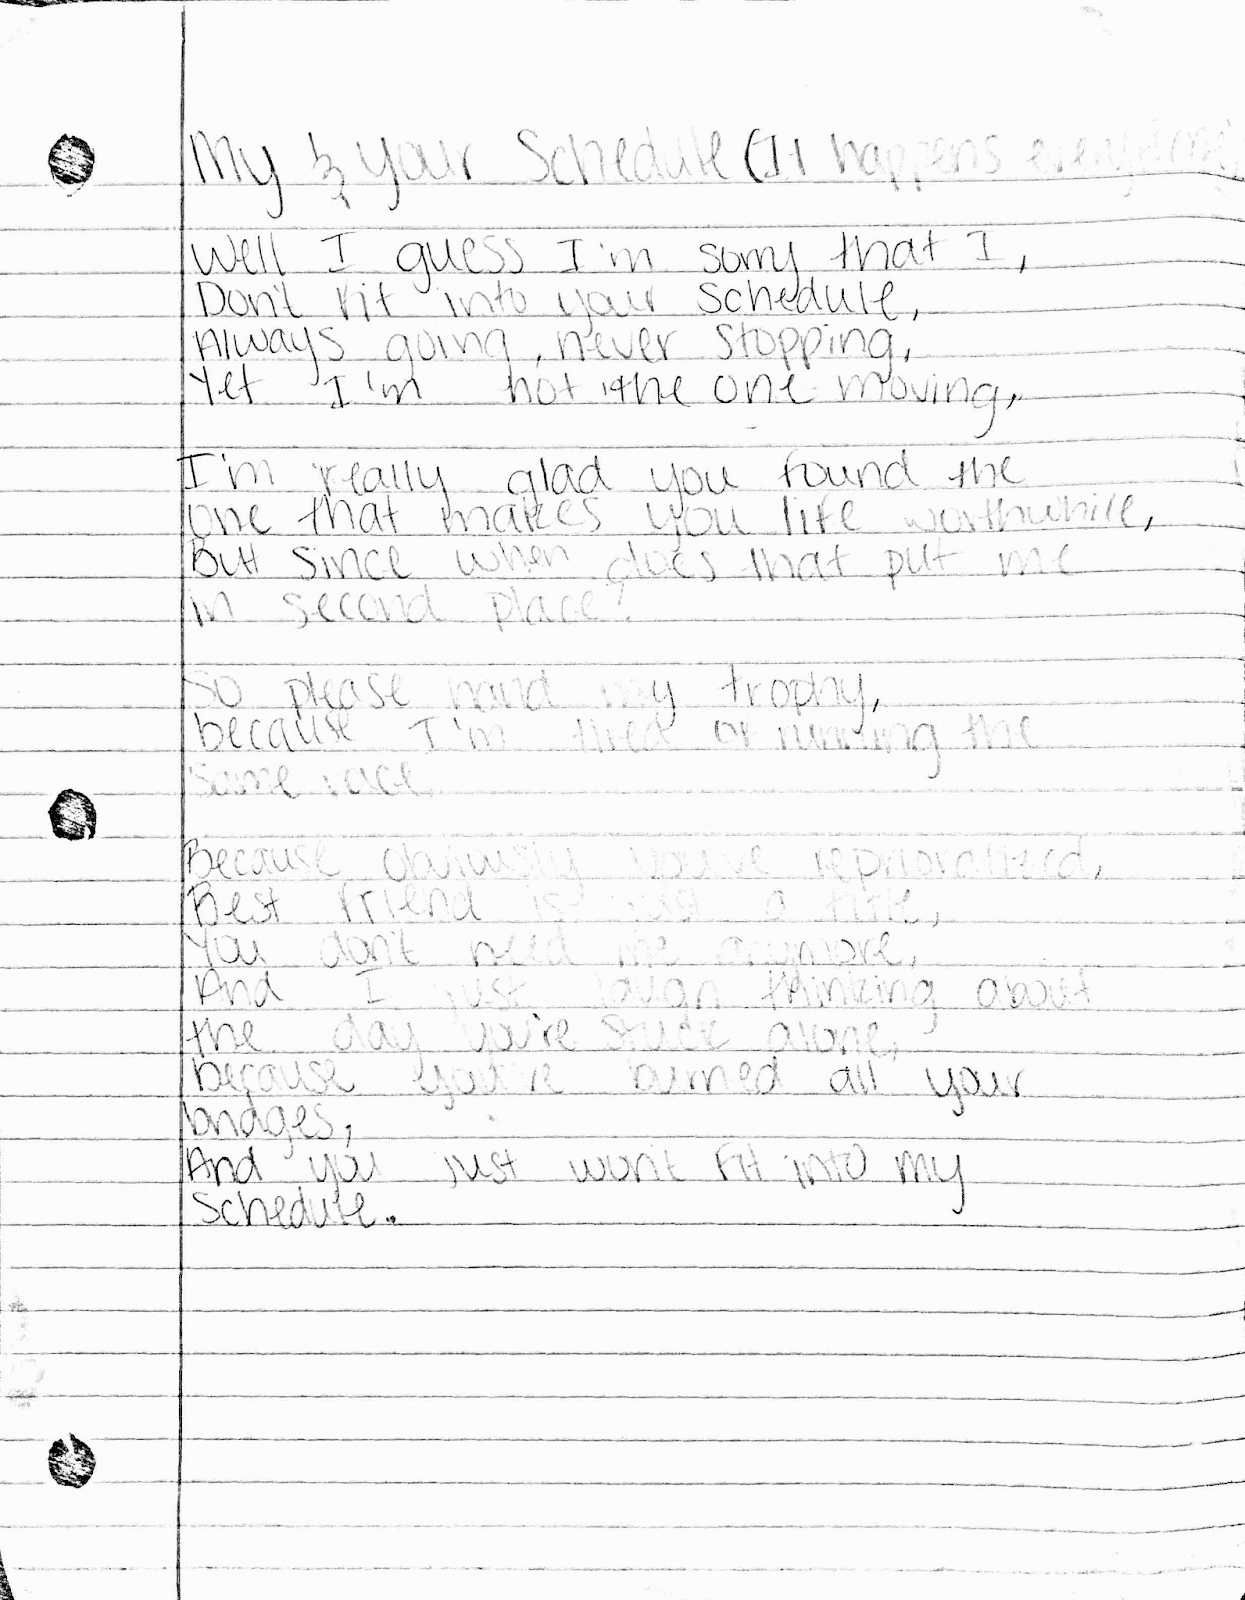 My & Your Schedule (It happens everytime
Well I guess I'm sorry that I,
Don't fit into your schedule,
Always going, never stopping,
Yet I'm not the one moving,
I'm really glad you found the
one that makes you life worthwhile,
but since when does that put me
in second place?
So please hand my trophy,
because I'm tired of running the
same race.
Because obviously you've reprioratized,
Best friend is just a title,
You don't need me anymore,
And I just laugh thinking about
the day you're stuck alone,
because you've burned all your
bridges,
And you just won't fit into my
Schedule.